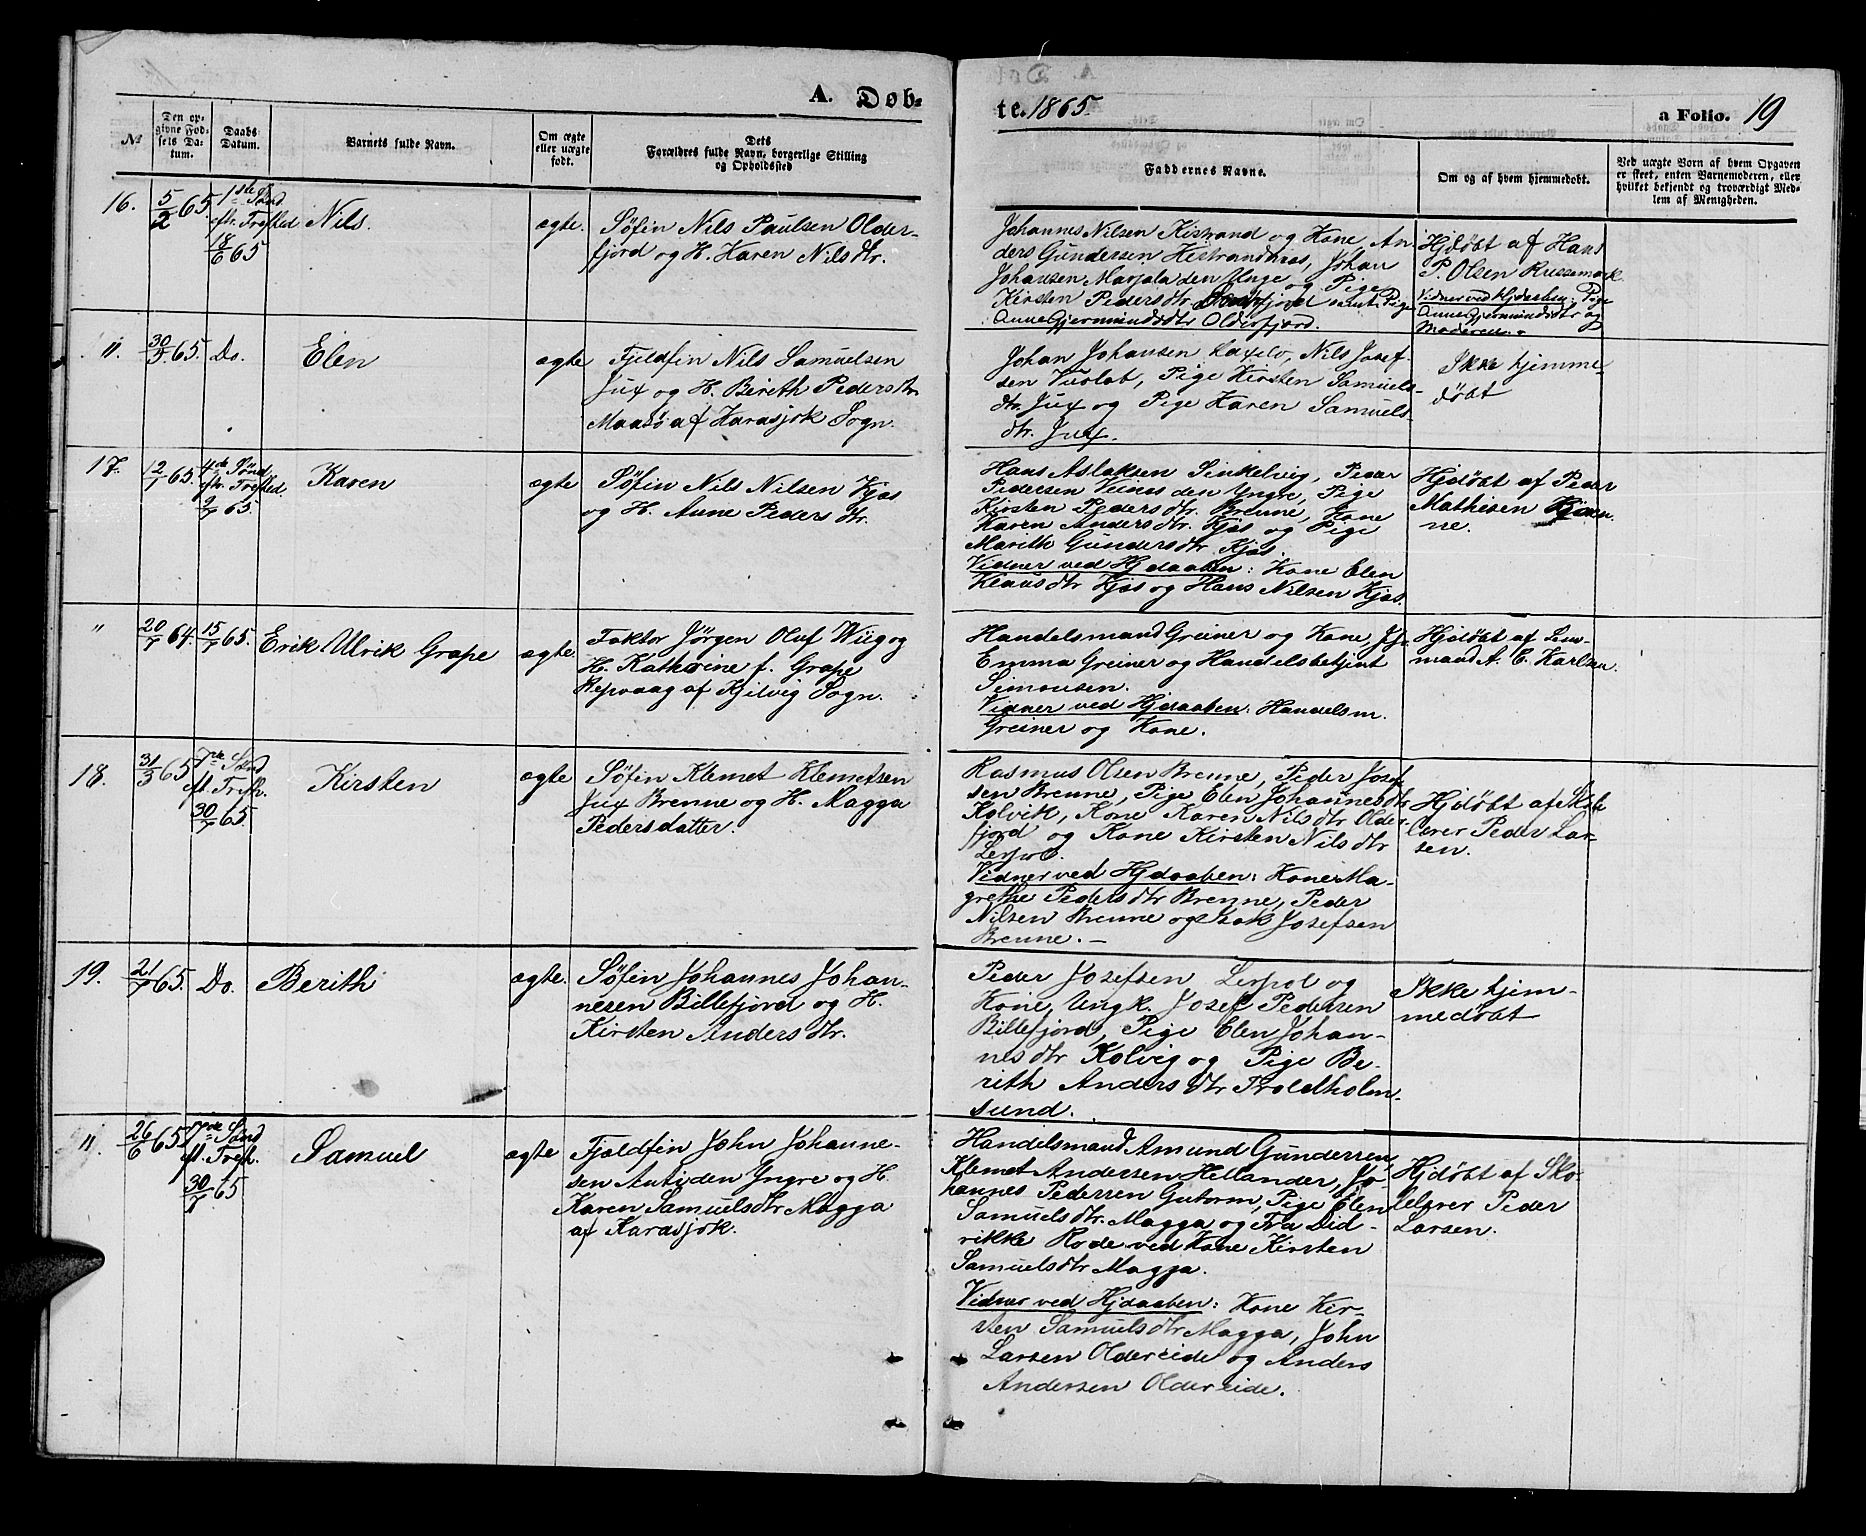 A. Døb-
te. 1865.
a Folio. 19
No
Den op-
givne Fød-
sels Da-
tum.
Daabs
Datum.
Barnets fulde Navn.
Om ægte
eller uægte
født.
Dets
Forældres fulde Navn, borgerlige Stilling
og Opholdssted
Faddernes Navne.
Om og af hvem hjemmedøbt.
Ved uægte Børn af hvem Opgaven
er skeet, enten Barnemoderen, eller
hvilket bekjendt og troværdigt Med-
lem af Menigheden.
16.
5/2 65.
1ste Sønd
eftr. Trefted
18/6 65
Nils.
ægte.
Søfin Nils Paulsen Older-
fjord og H. Karen Nilsdtr.
Johannes Nilsen Kistrand og Kone, An
ders Gundersen Kistrandnæs, Johan
Johansen Marjala den Unge og Pige
Kirsten Pedersdtr. fjord samt Pige
Anne Gjermundsdtr Olderfjord.
Hjdøbt af Hans
P. Olsen Russemark
Vidner ved Hjdaaben: Pige
Anne Gjermundsdtr og
Moderen.
"
30/3 65.
Do.
Elen
ægte
Fjeldfin Nils Samuelsen
Jux og H. Berith Pedersdtr.
Maasø af Karasjok Sogn.
Johan Johansen Laxelv, Nils Josef-
sen Vuolab, Pige Kirsten Samuels-
dtr. Jux og Pige Karen Samuels-
dtr. Jux.
Ikke hjemme-
døbt
17.
12/1 65.
4de Sønd
eftr. Trefted.
9/7 65.
Karen
ægte
Søfin Nils Nilsen Kjæs
og H. Anne Pedersdtr.
Hans Aslaksen Sinkelvig, Peder
Pedersen Veines den Yngre, Pige
Kirsten Pedersdtr. Brenne, Kone
Karen Andersdtr. Kjæs og Pige
Marith Gundersdtr Kjæs.
Vidner ved Hjdaaben: Kone Elen
Klausdtr Kjæs og Hans Nilsen Kjæs.
Hjdøbt af Peder
Mathisen
ne.
"
20/7 64.
15/7 65.
Erik Ulrik Grape
ægte.
Faktor Jørgen Oluf Wiig og
H. Kathrine f. Grape
Repvaag af Kjelvig Sogn.
Handelsmand Greiner og Kone, Jfr.
Emma Greiner og Handelsbetjent
Simonsen.
Vidner ved Hjdaaben: Handelsm.
Greiner og Kone.
Hjdøbt af Lens-
mand A. C. Karlsen.
18.
31/3 65
7de Sønd
eft. Trefh.
30/7 65.
Kirsten
ægte
Søfin Klemet Klemetsen
Jux Brenne og H. Magga
Pedersdatter.
Rasmus Olsen Brenne, Peder Josef
sen Brenne, Pige Elen Johannesdtr
Kolvik, Kone Karen Nilsdtr Older-
fjord og Kone Kirsten Nilsdtr
Lerpol.
Vidner ved Hjdaaben: Kone Ma-
grethe Pedersdtr Brenne, Peder
Nilsen Brenne og Isak Josefsen
Brenne. —
Hjdøbt af Skole
lærer Peder Lar-
sen.
19.
21/7 65.
Do.
Berith
ægte.
Søfin Johannes Johan-
nesen Billefjord og H.
Kirsten Andersdtr.
Peder Josefsen Lerpol og
Kone, Ungk. Josef Pedersen
Billefjord, Pige Elen Johan-
nesdtr Kolvig og Pige Be-
rith Andersdtr Troldholm-
sund.
Ikke hjem-
medøbt
"
26/6 65
7de Sønd
eft. Trefh.
30/7 65
Samuel
ægte
Fjeldfin John Johanne-
sen Anti den Yngre og H.
Karen Samuelsdtr Magga
af Karasjok.
Handelsmand Amund Gundersen,
Klemet Andersen Hellander, Jo-
hannes Pedersen Gutorm, Pige Elen
Samuelsdtr. Magga og Fru Did-
rikke Rode ved Kone Kirsten
Samuelsdtr Magga.
Vidner ved Hjdaaben: Kone Kir-
sten Samuelsdtr Magga, John
Larsen Oldereide og Anders
Andersen Oldereide.
Hjdøbt af Sko-
lelærer Peder
Larsen.